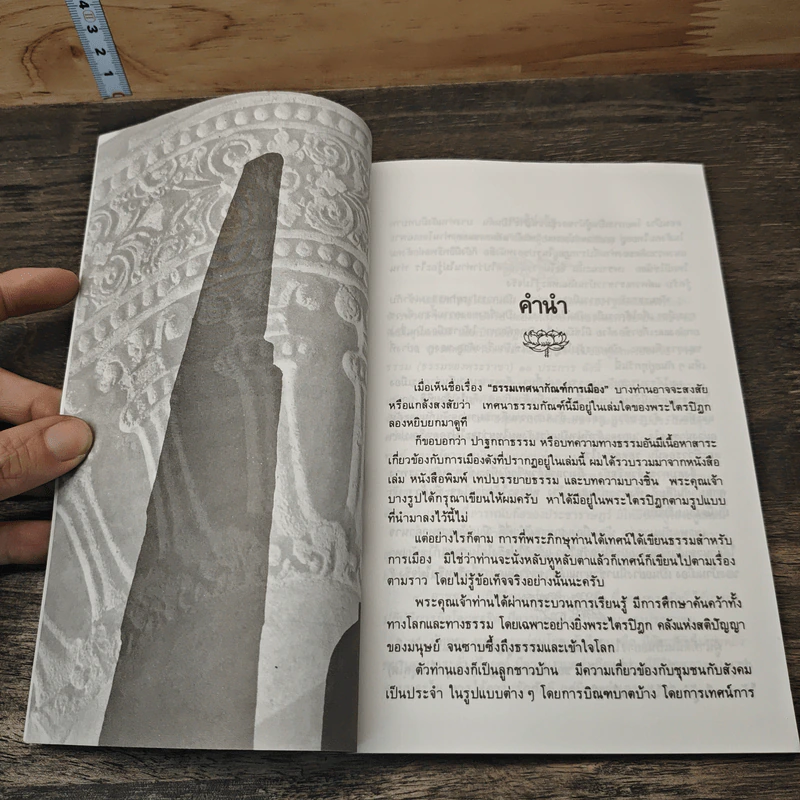 4
3
2
1
คำนำ
เมื่อเห็นชื่อเรื่อง "ธรรมเทศนากัณฑ์การเมือง" บางท่านอาจจะสงสัย
หรือแกล้งสงสัยว่า เทศนาธรรมกัณฑ์นี้มีอยู่ในเล่มใดของพระไตรปิฎก
ลองหยิบยกมาดูที
ก็ขอบอกว่า ปาฐกถาธรรม หรือบทความทางธรรมอันมีเนื้อหาสาระ
เกี่ยวข้องกับการเมืองดังที่ปรากฏอยู่ในเล่มนี้ ผมได้รวบรวมมาจากหนังสือ
เล่ม หนังสือพิมพ์ เทปบรรยายธรรม และบทความบางชิ้น พระคุณเจ้า
บางรูปได้กรุณาเขียนให้ผมครับ หาได้มีอยู่ในพระไตรปิฎกตามรูปแบบ
ที่นำมาลงไว้นี้ไม่
แต่อย่างไรก็ตาม การที่พระภิกษุท่านได้เทศน์ได้เขียนธรรมสำหรับ
การเมือง มิใช่ว่าท่านจะนั่งหลับหูหลับตาแล้วก็เทศน์ก็เขียนไปตามเรื่อง
ตามราว โดยไม่รู้ข้อเท็จจริงอย่างนั้นนะครับ
พระคุณเจ้าท่านได้ผ่านกระบวนการเรียนรู้ มีการศึกษาค้นคว้าทั้ง
ทางโลกและทางธรรม โดยเฉพาะอย่างยิ่งพระไตรปิฎก คลังแห่งสติปัญญา
ของมนุษย์ จนซาบซึ้งถึงธรรมและเข้าใจโลก
ตัวท่านเองก็เป็นลูกชาวบ้าน มีความเกี่ยวข้องกับชุมชนกับสังคม
เป็นประจำ ในรูปแบบต่าง ๆ โดยการบิณฑบาตบ้าง โดยการเทศน์การ